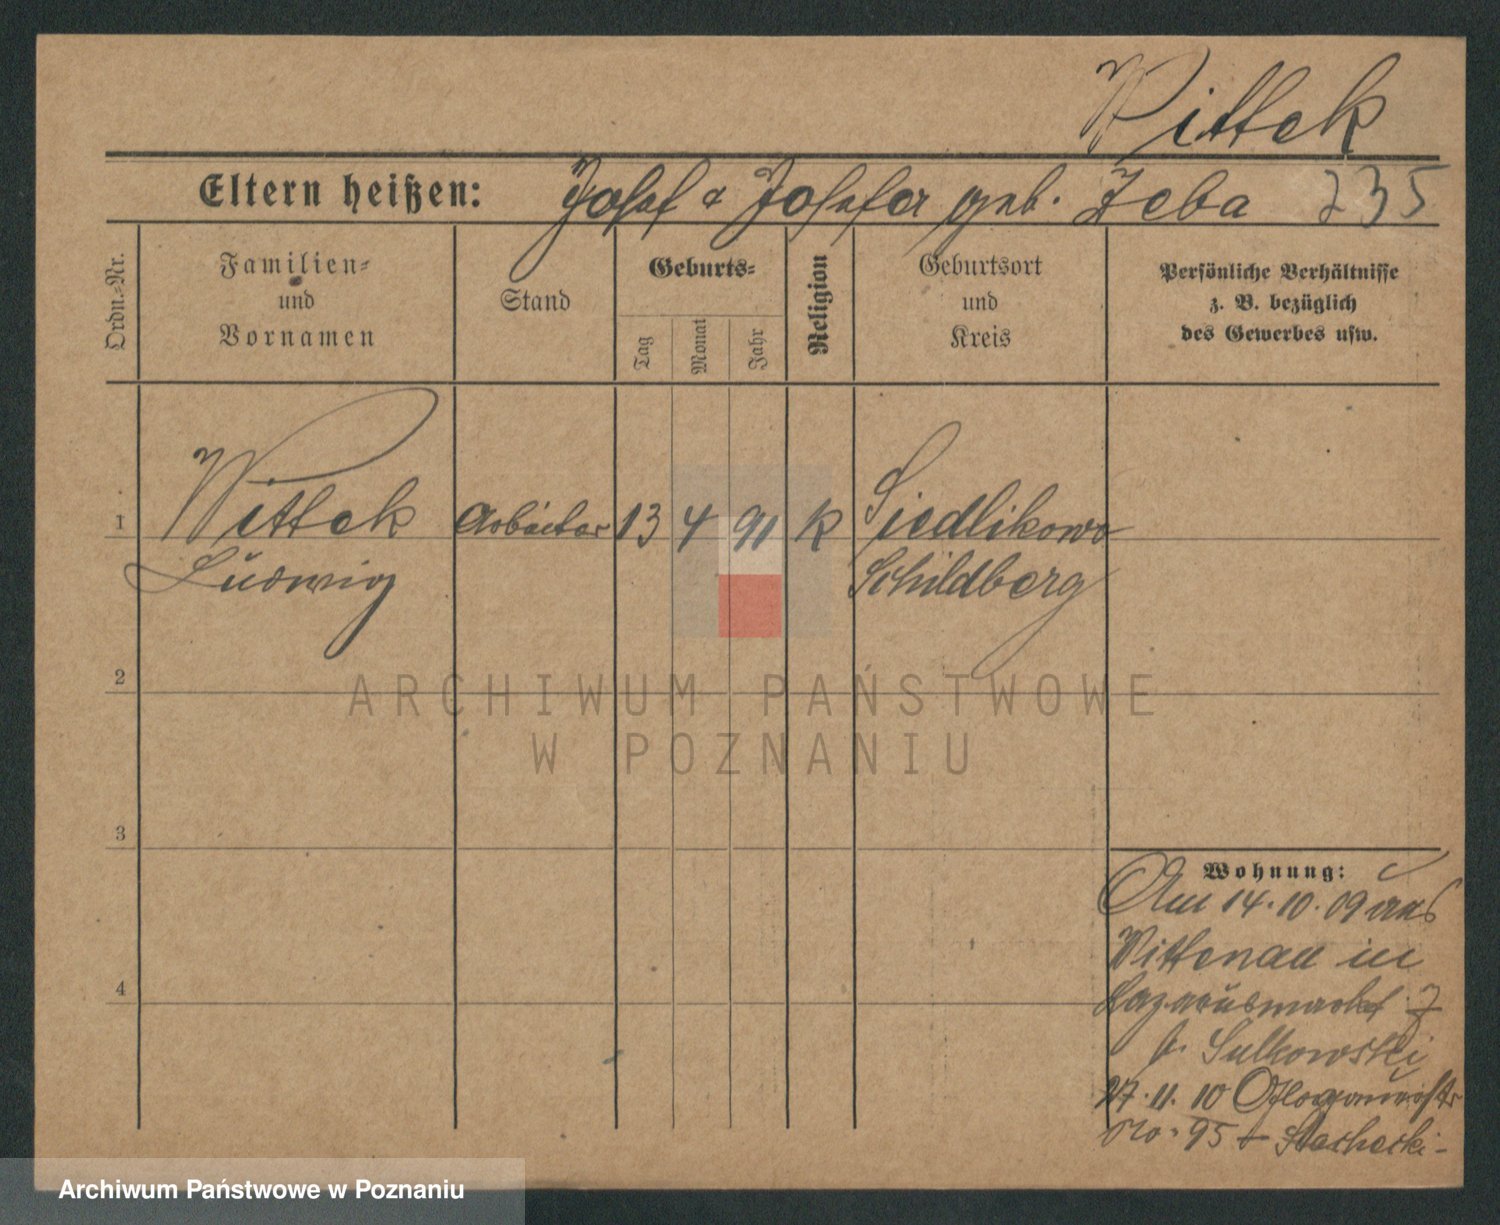 Wittek
Eltern heißen: Josef & Josefa geb. Zeba 235
Ordn.-Nr.
Familien-
und
Vornamen
Stand
Geburts-
Tag
Monat
Jahr
Religion
Geburtsort
und
Kreis
Persönliche Verhältnisse
z. B. bezüglich
des Gewerbes usw.
1 Wittek Arbeiter 13 4 91 K Siedlikowo
Ludwig Schildberg
2
ARCHIWUM PAŃSTWOWE
W POZNANIU
3
4
Wohnung:
Am 14.10.09 aus
Wittenau in
Lazarusmarkt 7
b. Sulkowski
27.11.10 Glogauerstr
No. 95
Archiwum Państwowe w Poznaniu